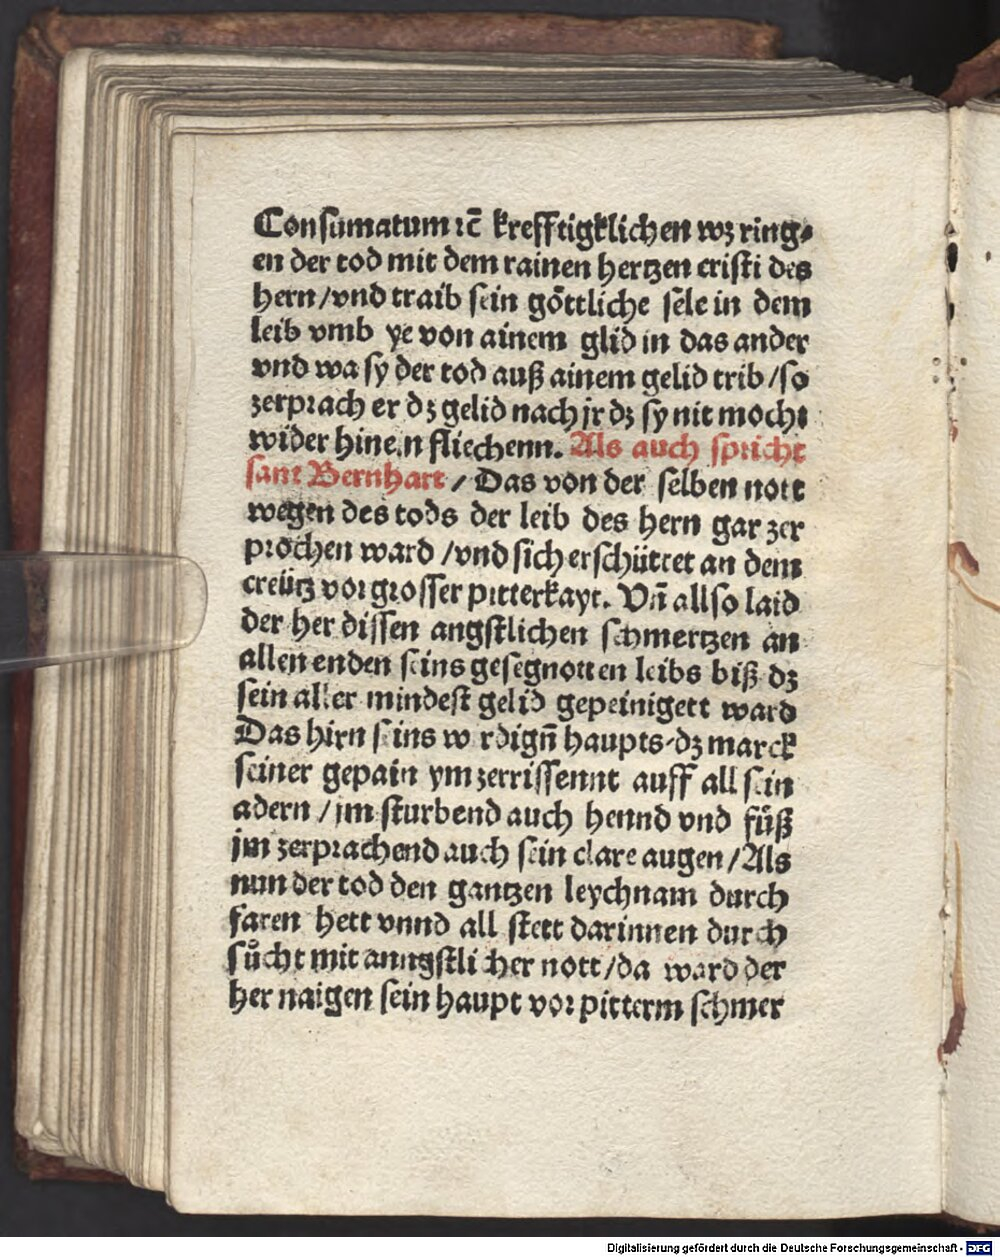 Consumatum ⁊c̄ krefftigklichen wꝫ ring⸗
en der tod mit dem rainen hertzen cristi des
hern/vnd traib sein göttliche sele in dem
leib vmb ye von ainem glid in das ander
vnd wa sy der tod auß ainem gelid trib/so
zerprach er dꝫ gelid nach jr dꝫ sy nit mocht
wider hinein fliechenn. Als auch spricht
sant Bernhart / Das von der selben nott
wegen des tods der leib des hern gar zer
prochen ward /vnd sich erschüttet an dem
creütz vor grosser pitterkayt. Vn̄ allso laid
der her dissen angstlichen schmertzen an
allen enden seins gesegnotten leibs biß dꝫ
sein aller mindest gelid gepeinigett ward
Das hirn seins wirdign̄ haupts⸗dꝫ marck
seiner gepain ym zerrissennt auff all sein
adern /jm sturbend auch hennd vnd füß
jm zerprachend auch sein clare augen/Als
nun der tod den gantzen leychnam durch
faren hett vnnd all stett darinnen durch
sůcht mit anngstlicher nott/da ward der
her naigen sein haupt vor pitterm schmer
Digitalisierung gefördert durch die Deutsche Forschungsgemeinschaft - DFG